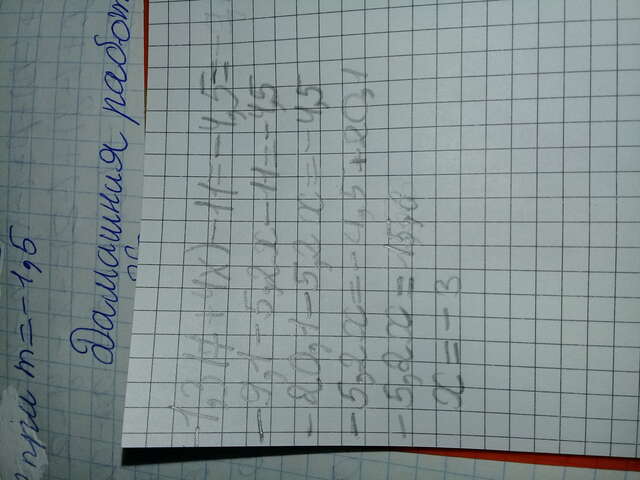 при m=-1,5
Дамашния работ
-1,3(7+4x)-11=-4,5=
-9,1-5,2x-11=-4,5
-20,1-5,2x=-4,5
-5,2x=-4,5+20,1
-5,2x=15,6
x=-3